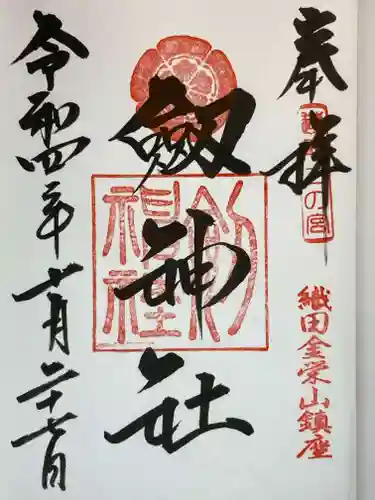 奉拝
の宮
織田金栄山鎮座
劔神社
劔神社
令和四年十一月二十七日